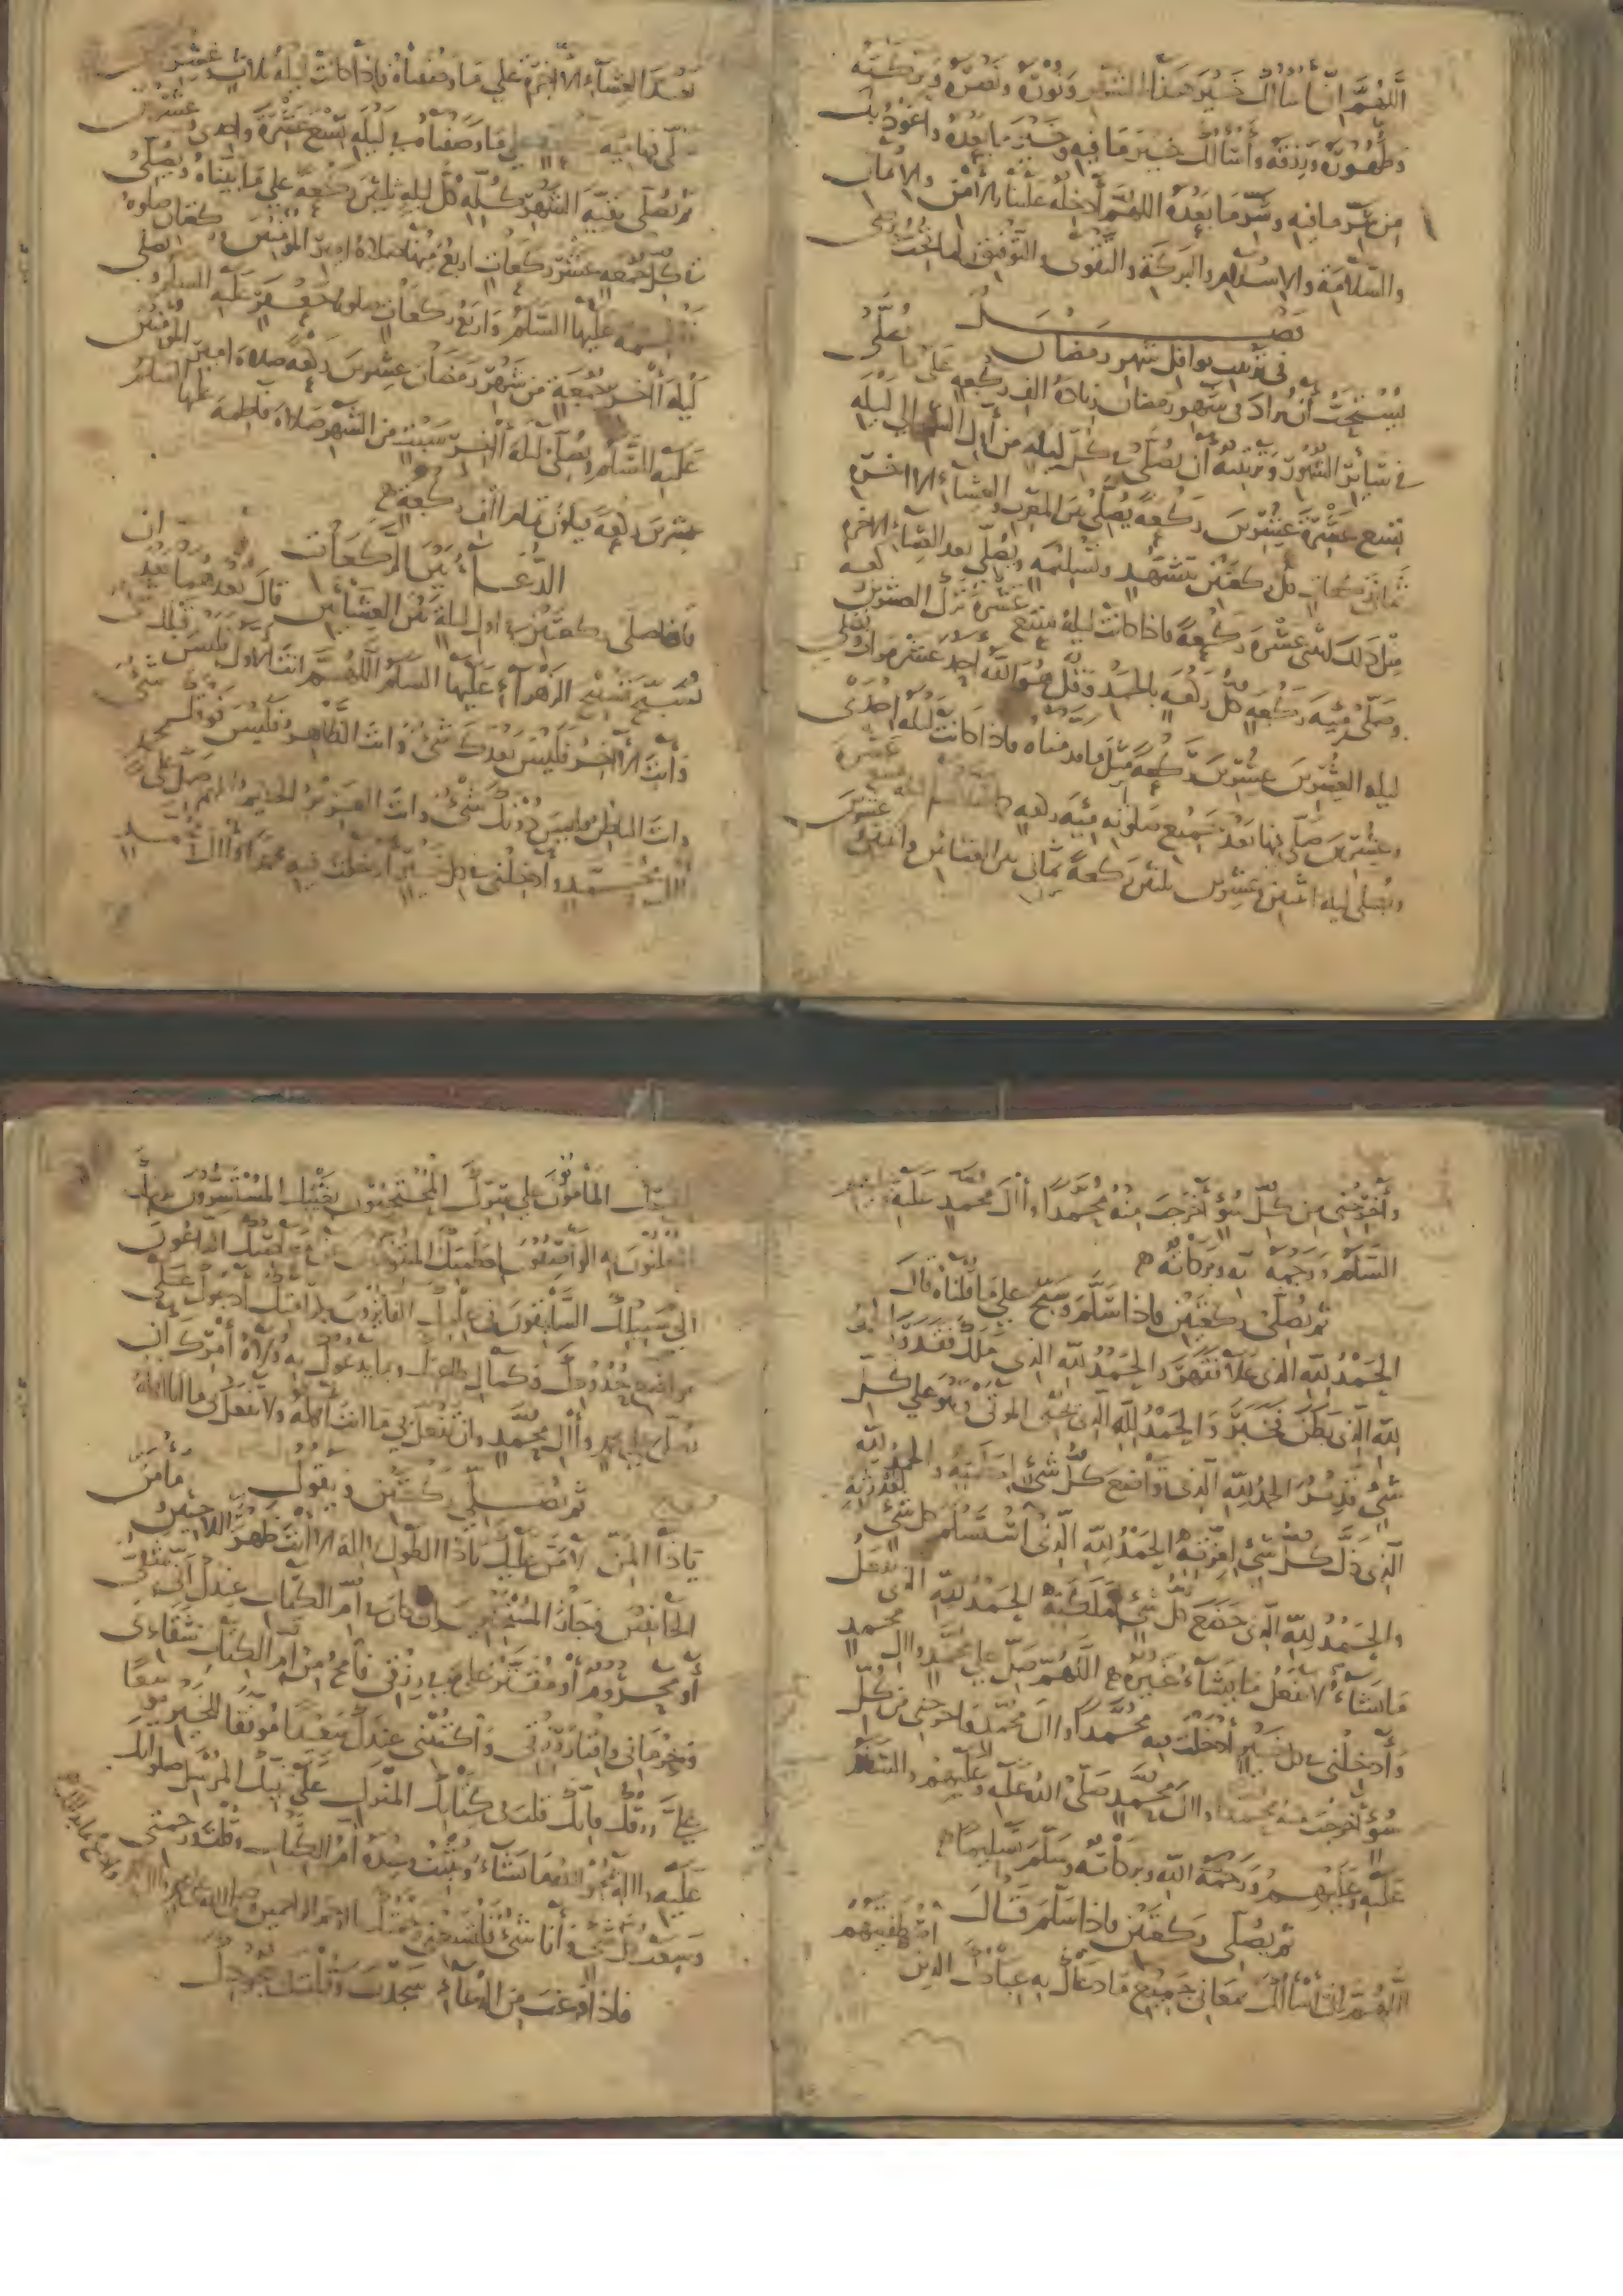 اللهم انا نسالك خير هذا الشهر ونوره ونصره وبركته
وطهوره ورزقه واسالك خير ما فيه وخير ما بعده واعوذ بك
من شر ما فيه وشر ما بعده اللهم أدخله علينا بالامن والامان
والسلامة والاسلام والبركة والتقوى والتوفيق لما تحب وترضى
فصل
في ترتيب نوافل شهر رمضان
يستحب أن يزاد في شهر رمضان زيادة الف ركعة على ما يصلى
في سائر الشهور وترتيبه أن يصلى كل ليلة من أول الشهر الى ليلة
تسع عشرة عشرين ركعة يصلى بين المغرب والعشاء الاخرة
ثماني ركعات كل ركعتين بتشهد وتسليمه ويصلى بعد العشاء الاخرة
اثنتي عشرة ركعة فاذا كانت ليلة تسع عشرة ترك العشرين ركعه
وصلى مئة ركعة كل ركعه بالحمد وقل هو الله احد عشر مرات ويصلي
ليله العشرين عشرين ركعة مثل ما قدمناه فاذا كانت ليله احدى
وعشرين صلى بها بعد جميع صلوته مئة ركعه
ويصلى ليله اثنين وعشرين ثلثين ركعة ثماني بين العشائين واثنتين
بعد العشاء الاخرة على ما وصفناه فاذا كانت ليلة ثلاث وعشرين
صلى بها مئة على ما وصفناه في ليلة تسع عشرة واحدى وعشرين
ثم يصلي بقيه الشهر كله كل ليله ثلثين ركعة على ما بيناه ويصلى
في كل جمعه عشر ركعات اربع منها صلاة امير المؤمنين وركعتان صلوة
فاطمه عليها السلام واربع ركعات صلوة جعفر عليه السلم ويصلي
ليلة اخر جمعة من شهر رمضان عشرين ركعة صلاة امير المؤمنين
عليه السلام ويصلى ليلة اخر سبت من الشهر صلاة فاطمة عليها السلم
عشرين ركعة فيكون تمام الف ركعة
الدعاء بين الركعات
فاذا صلى ركعتين في اول ليلة بين العشائين قال بعدهما بعد ان
يسبح تسبيح الزهراء عليها السلم اللهم انت الاول فليس قبلك شيء
وانت الاخر فليس بعدك شيء وانت الظاهر فليس فوقك شيء
وانت الباطن فليس دونك شيء وانت العزيز الحكيم اللهم صل على محمد
وال محمد وأدخلنى في كل خير أدخلت فيه محمدا وال محمد
وأخرجنى من كل سوء أخرجت منه محمدا وال محمد عليه وعليهم
السلم ورحمة الله وبركاته
ثم يصلى ركعتين فاذا سلم وسبح على ما قلناه قال
الحمد لله الذي علا فقهر والحمد لله الذي ملك فقدر الحمد
لله الذي بطن فخبر والحمد لله الذي يحيى الموتى وهو على كل
شيء قدير الحمد لله الذي تواضع كل شيء لعظمته والحمد لله
الذي ذل كل شيء لعزته الحمد لله الذي استسلم كل شيء لقدرته
والحمد لله الذي خضع كل شيء لملكته الحمد لله الذي يفعل
ما يشاء ولا يفعل ما يشاء غيره اللهم صل على محمد وال محمد
وأدخلنى في كل خير أدخلت فيه محمدا وال محمد واخرجني من كل
سوء أخرجت منه محمدا وال محمد صلى الله عليه وعليهم والسلام
عليه وعليهم ورحمة الله وبركاته وسلم تسليما
ثم يصلى ركعتين فاذا سلم قال
اللهم انى أسألك بمعانى جميع ما دعاك به عبادك الذين اصطفيتهم
لنفسك المأمونون على سرك المحتجبون بغيبك المستسرون بدينك
المعلنون به الواصفون لعظمتك المنزهون عن معاصيك الداعون
الى سبيلك السابقون في علمك الفائزون بكرامتك أدعوك على
مواضع حدودك وكمال طاعتك وبما يدعوك به ولاة أمرك ان
تصلى على محمد وال محمد وان تفعل بي ما انت اهله ولا تفعل بي ما انا اهله
ثم يصلي ركعتين ويقول
ياذا المن لا من عليك ياذا الطول لا اله الا أنت ظهر اللاجين ومأمن
الخائفين وجار المستجيرين ان كان في أم الكتاب عندك أنى شقي
أو محروم أو مقتر على في رزقى فامح من أم الكتاب شقاءى
وحرمانى واقتار رزقى واكتبنى عندك سعيدا موفقا للخير موسعا
على رزقك فانك قلت في كتابك المنزل على نبيك المرسل صلواتك
عليه واله يمحو الله ما يشاء ويثبت وعنده أم الكتاب وقلت ورحمتي
وسعت كل شيء وأنا شيء فلتسعنى رحمتك يا ارحم الراحمين وصل على محمد وال محمد
فاذا فرغت من الدعاء سجدت وقلت